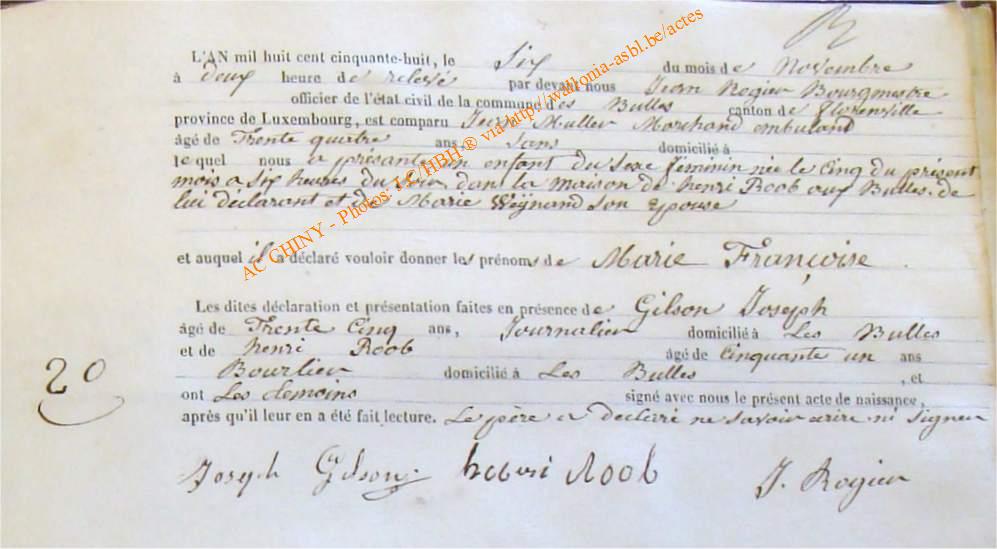 L'AN mil huit cent cinquante-huit, le Six du mois de Novembre
à deux heure de relevé par devant nous Jean Rogier Bourgmestre
officier de l'état civil de la commune des Bulles canton de florenville
province de Luxembourg, est comparu Jean Muller Marchand embuland
âgé de Trente quatre ans, Sans domicilié à
lequel nous a présanté un enfant du Sexe féminin née le Cinq du présent
mois a Six heures du Soir dans la maison de henri Roob aux Bulles. de
lui déclarant et de Marie Weynand Son épouse
et auquel il a déclaré vouloir donner les prénoms de Marie Françoise.
Les dites déclaration et présentation faites en présence de Gilson Joseph
âgé de Trente Cinq ans, Journalier domicilié à Les Bulles
et de henri Roob âgé de Cinquante un ans
Bourlier domicilié à Les Bulles, et
ont Les temoins signé avec nous le présent acte de naissance,
après qu'il leur en a été fait lecture. Le père a declaré ne Savoir ecrire ni Signer
20
Joseph Gilson henri Roob J. Rogier
AC CHINY - Photos: LC/HBH® via http://wallonia-asbl.be/actes